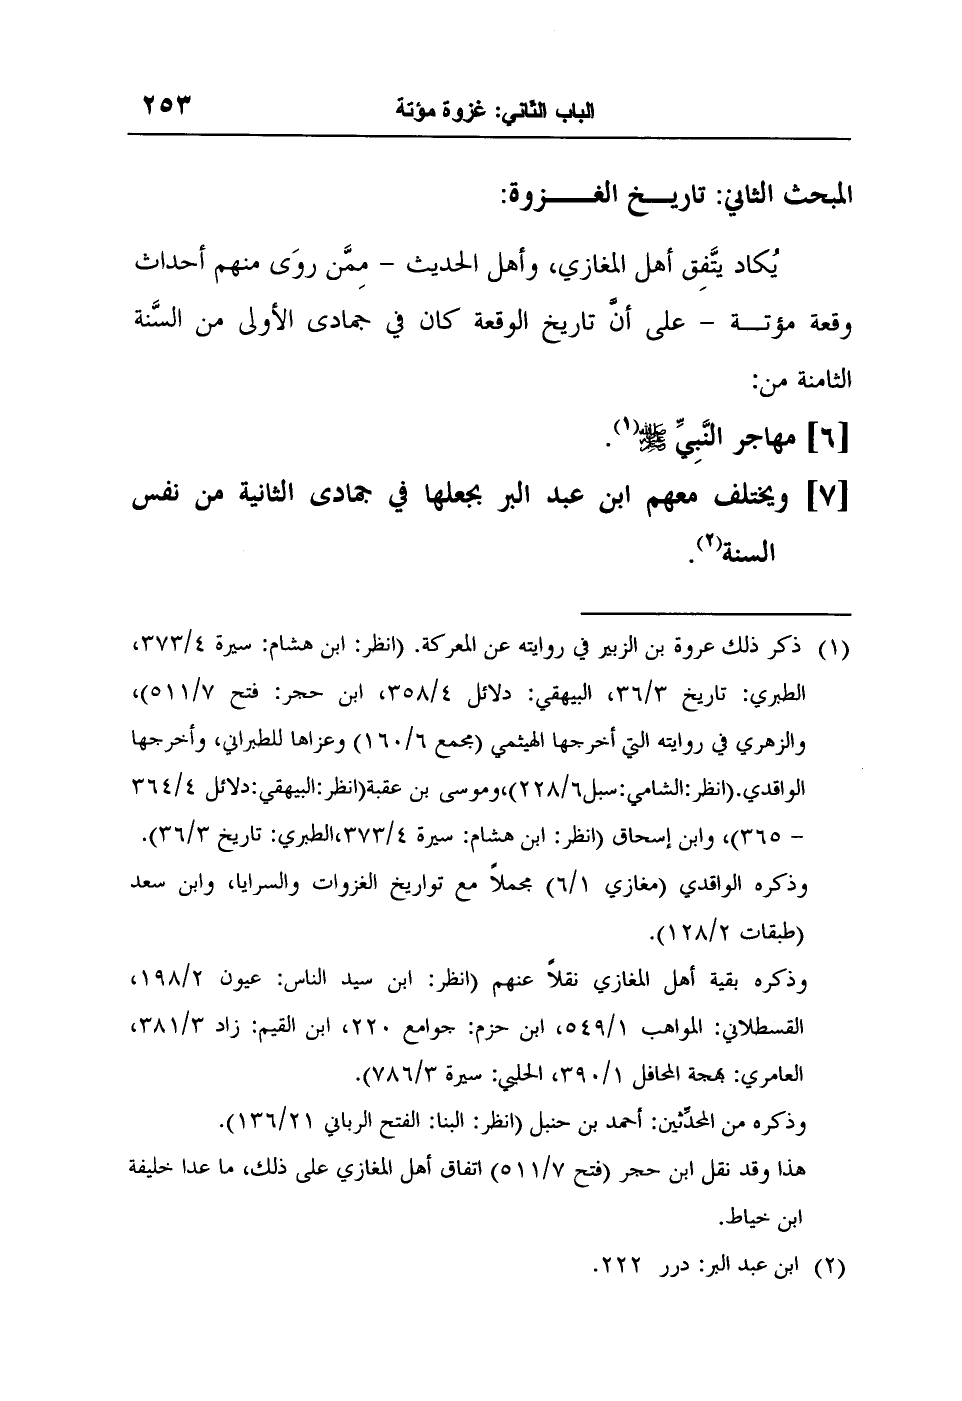 الباب الثاني: غزوة مؤتة ٢٥٣
المبحث الثاني: تاريـــخ الغـــــزوة:
يُكاد يتَّفِق أهل المغازي، وأهل الحديث – مِمَّن روَى منهم أحداث
وقعة مؤتـــة – على أنَّ تاريخ الوقعة كان في جمادى الأولى من السَّنة
الثامنة من:
[٦] مهاجر النَّبِيِّ ﷺ(١).
[٧] ويختلف معهم ابن عبد البر بجعلها في جمادى الثانية من نفس
السنة(٢).
(١) ذكر ذلك عروة بن الزبير في روايته عن المعركة. (انظر: ابن هشام: سيرة ٣٧٣/٤،
الطبري: تاريخ ٣٦/٣، البيهقي: دلائل ٣٥٨/٤، ابن حجر: فتح ٥١١/٧)،
والزهري في روايته التي أخرجها الهيثمي (مجمع ١٦٠/٦) وعزاها للطبراني، وأخرجها
الواقدي.(انظر:الشامي:سبل٢٢٨/٦)،وموسى بن عقبة(انظر:البيهقي:دلائل ٣٦٤/٤
– ٣٦٥)، وابن إسحاق (انظر: ابن هشام: سيرة ٣٧٣/٤،الطبري: تاريخ ٣٦/٣).
وذكره الواقدي (مغازي ٦/١) مجملاً مع تواريخ الغزوات والسرايا، وابن سعد
(طبقات ١٢٨/٢).
وذكره بقية أهل المغازي نقلاً عنهم (انظر: ابن سيد الناس: عيون ١٩٨/٢،
القسطلاني: المواهب ٥٤٩/١، ابن حزم: جوامع ٢٢٠، ابن القيم: زاد ٣٨١/٣،
العامري: بهجة المحافل ٣٩٠/١، الحلبي: سيرة ٧٨٦/٣).
وذكره من المحدِّثين: أحمد بن حنبل (انظر: البنا: الفتح الرباني ١٣٦/٢١).
هذا وقد نقل ابن حجر (فتح ٥١١/٧) اتفاق أهل المغازي على ذلك، ما عدا خليفة
ابن خياط.
(٢) ابن عبد البر: درر ٢٢٢.